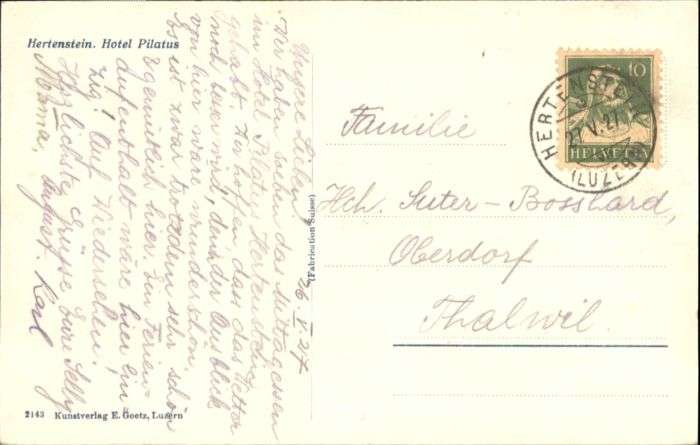 Hertenstein. Hotel Pilatus
Unsere Lieben,
Wir haben soeben das Mittagessen
im Hotel Pilatus Hertenstein
gehabt. Wir hoffen dass das Wetter
noch besser wird, denn der Ausblick
von hier wäre wunderschön.
Es ist zwar trotzdem sehr schön
& gemütlich hier. Ein Ferien-
Aufenthalt wäre hier ein
Zug! Auf Wiedersehen!
Herzlichste Grüsse Eure Selly
Mama, August. Karl
26 V 27
(Fabrication Suisse)
2143 Kunstverlag E. Goetz, Luzern
10
HELVETIA
HERTENSTEIN
27.V.27
(LUZERN)
Familie
Hch. Suter-Bosshard,
Oberdorf
Thalwil.